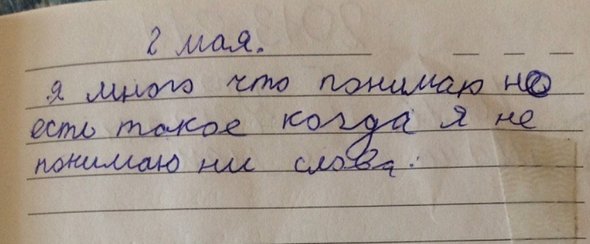 2 мая.
я много что понимаю но
есть такое когда я не
понимаю ни слова.